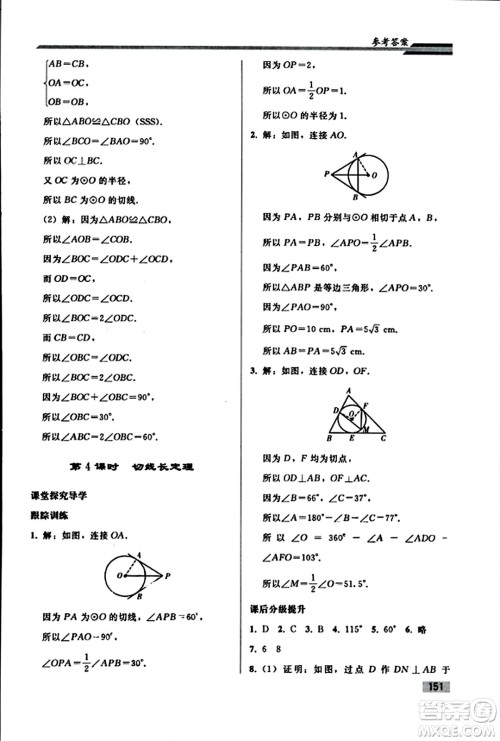 参考答案
AB=CB，
OA=OC，
OB=OB，
所以△ABO≌△CBO（SSS）.
所以∠BCO=∠BAO=90°.
所以OC⊥BC.
又OC为⊙O的半径，
所以BC为⊙O的切线.
（2）解：因为△ABO≌△CBO，
所以∠AOB=∠COB.
因为∠BOC=∠AOD，
所以∠BOC=2∠ODC.
而OD=OC，
所以∠ODC=∠OCD.
所以∠BOC=2∠OCD.
而CB=CD，
所以∠OBC=∠ODC.
所以∠BOC=2∠OBC.
因为∠BOC+∠OBC=90°，
所以∠OBC=30°.
所以∠ABC=2∠OBC=60°.
第4课时 切线长定理
课堂探究导学
跟踪训练
1. 解：如图，连接OA.
A
O
P
B
因为PA为⊙O的切线，∠APB=60°，
所以∠PAO=90°，
∠OPA=1/2∠APB=30°.
因为OP=2，
所以OA=1/2OP=1.
所以⊙O的半径为1.
2. 解：如图，连接AO.
A
P
O
B
因为PA，PB分别与⊙O相切于点A，B，
所以PA=PB，∠APO=1/2∠APB.
所以△ABP是等边三角形，∠APO=30°.
所以PO=10 cm，PA=5√3 cm.
所以AB=5√3 cm.
3. 解：如图，连接OD，OF.
A
D
F
O
M
B
E
C
因为D，F均为切点，
所以∠ADO=∠AFO=90°.
所以∠A=180°-∠B-∠C=77°.
所以∠O=360°-∠A-∠ADO-
∠AFO=103°.
所以∠M=1/2∠O=51.5°.
课后分级提升
1. D 2. C 3. B 4. 115° 5. 60° 6. 略
7. 6 8
8. （1）证明：如图，过点D作DN⊥AB于
151